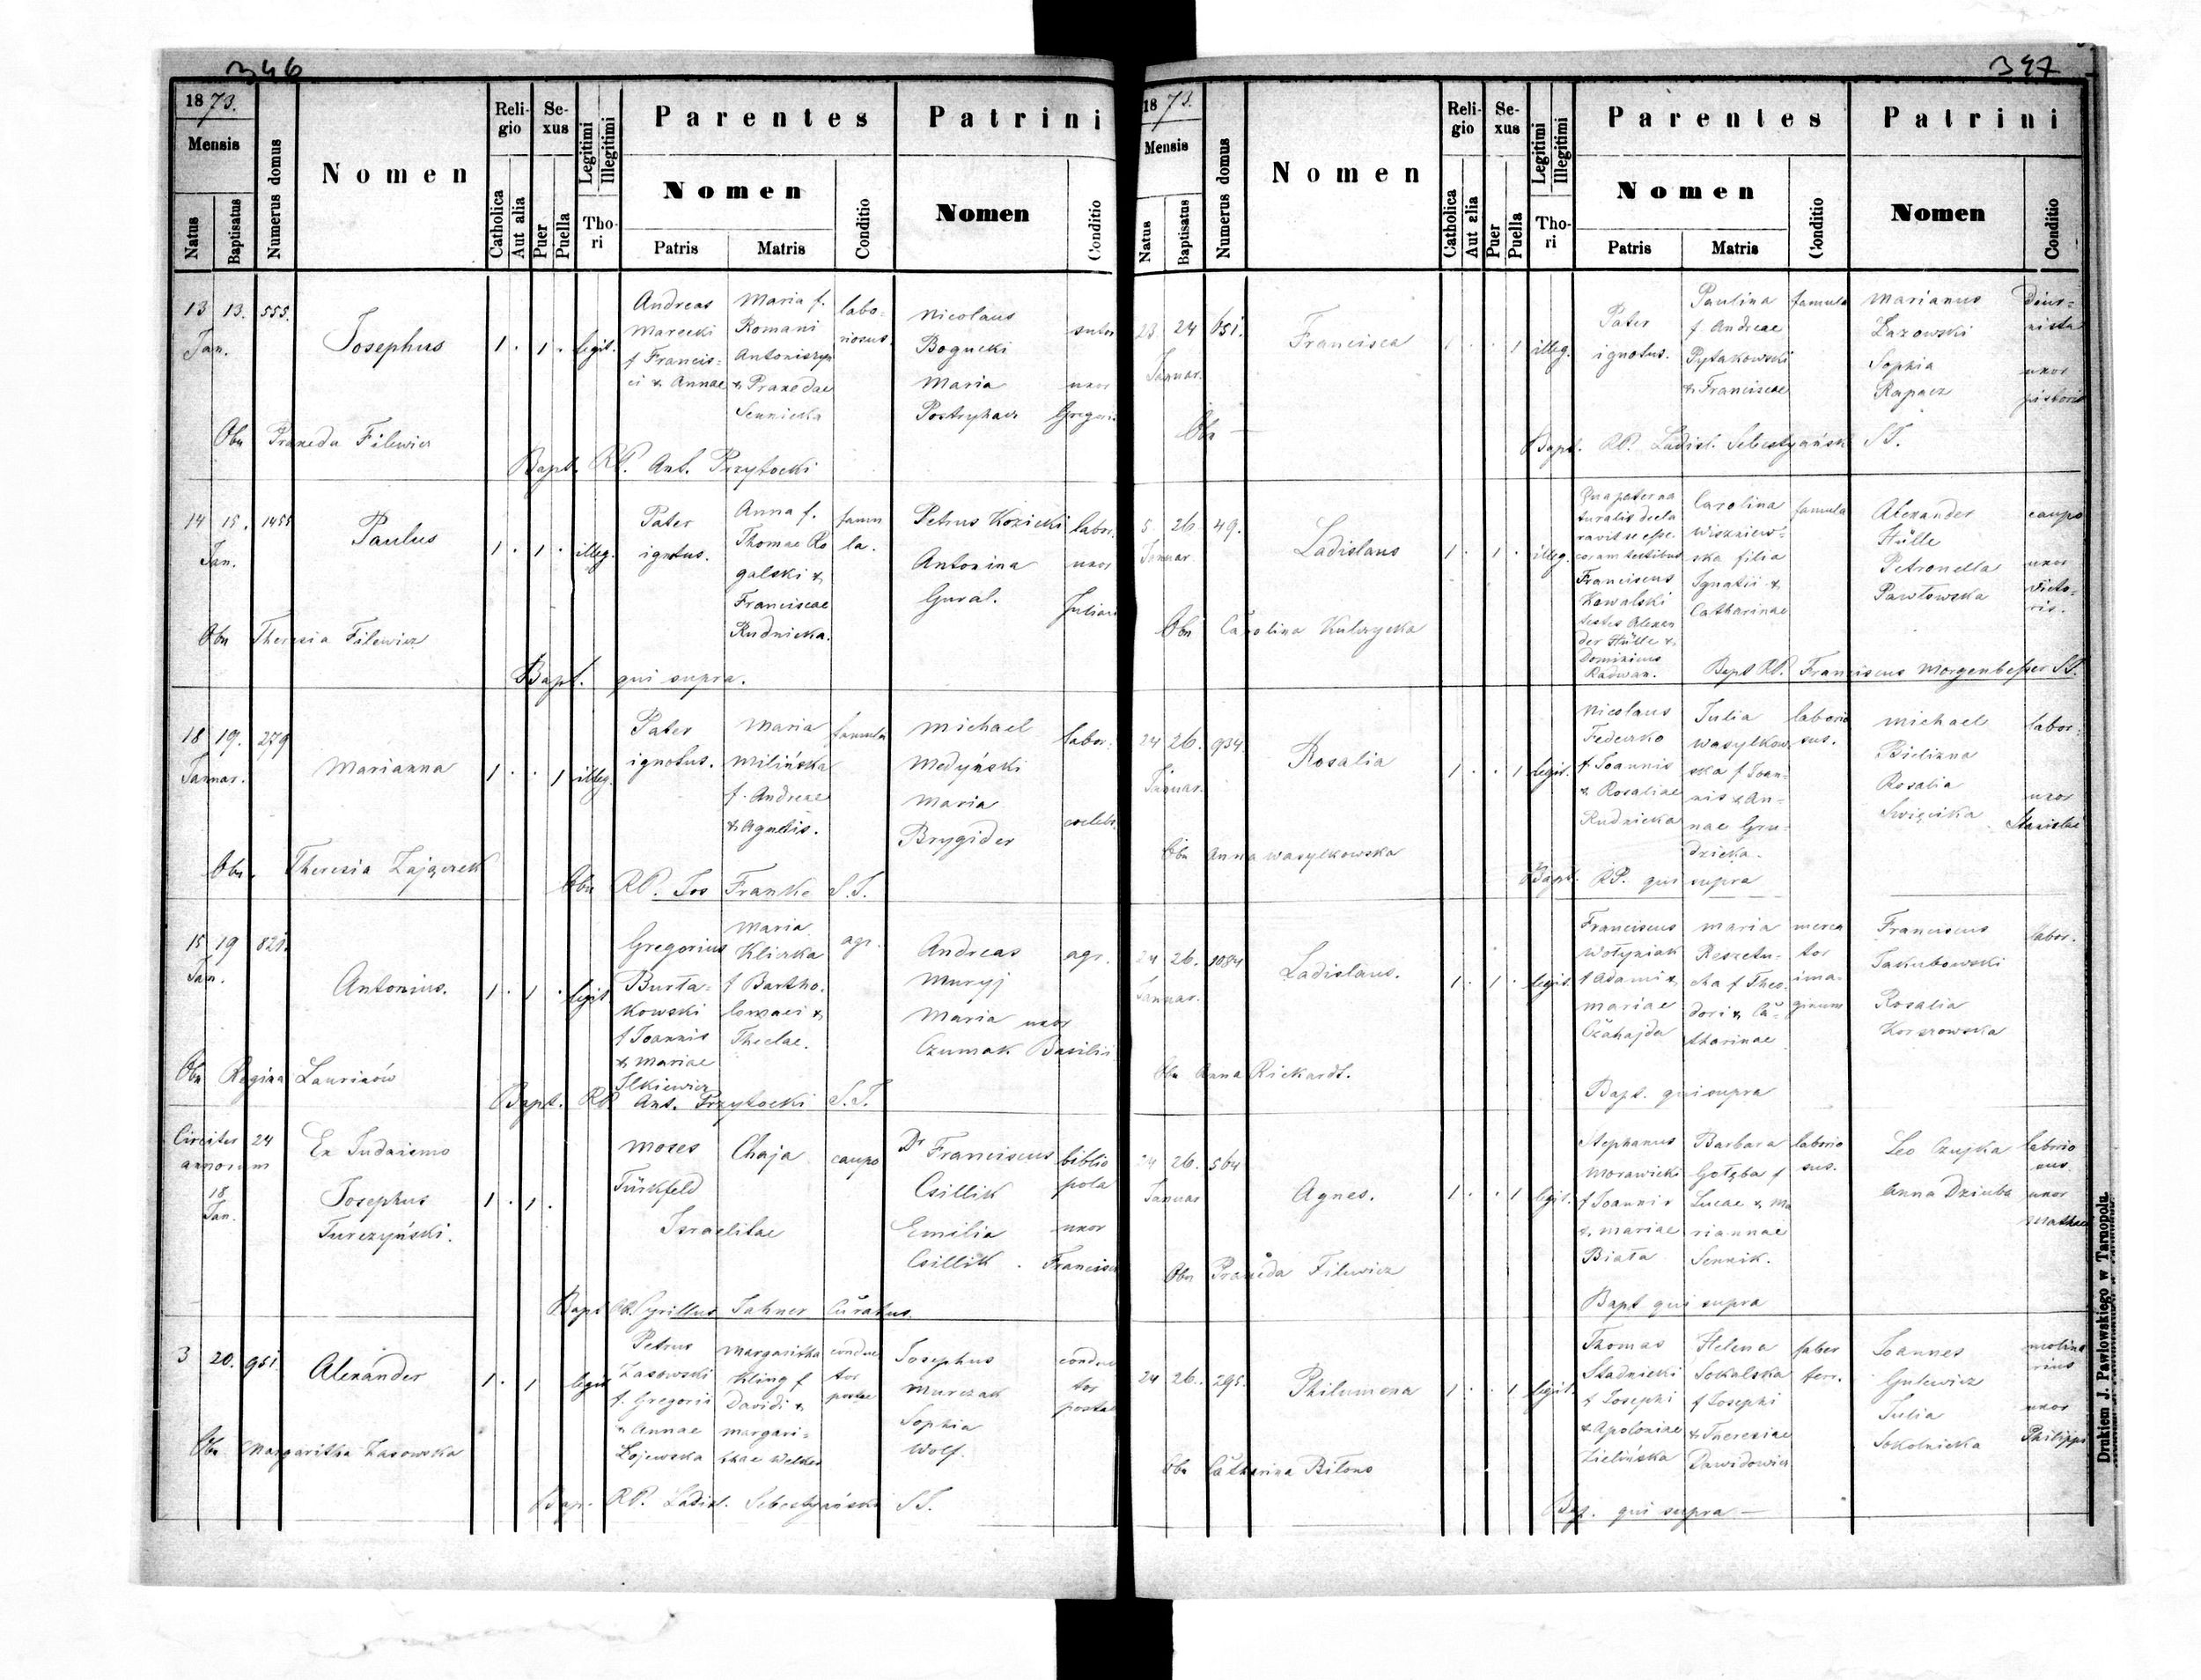 346
1873.
Mensis
Natus
Baptisatus
Numerus domus
Nomen
Religio
Catholica
Aut alia
Sexus
Puer
Puella
Legitimi
Illegitimi
Thori
Parentes
Nomen
Patris
Matris
Conditio
Patrini
Nomen
Conditio
13 13. 555.
Jan.
Josephus
1 . 1 . legit.
Andreas
Marecki
f Francis=
ci & Annae
Maria f.
Romani
& Praxedae
labo=
riosus.
Nicolaus
Bogucki
Maria
sutor
uxor
Gregorii
Obn Praxeda Filewicz
Bapt. RP. Ant. Przytocki
14 15. 1455
Jan.
Paulus
1 . 1 . illeg.
Pater
ignotus.
Anna f.
Thomae Ro
galski &
Franciscae
Rudnicka.
famu
la.
Petrus Kozicki
Antonina
Gural.
labor.
uxor
Juliani
Obn Theresia Filewicz
Bapt. qui supra.
18 19. 279
Januar.
Marianna
1 . . 1 illeg.
Pater
ignotus.
Maria
Milińska
f. Andreae
& Agnetis.
famula
Michael
Medyński
Maria
Brygider
labor.
coeleb.
Obn. Theresia Zajączek
Obn RP. Jos Franke S.J.
15 19 821.
Jan.
Antonius.
1 . 1 . legit
Gregorius
Burta=
kowski
f Joannis
& Mariae
Ilkiewicz
Maria
Klicka
f Bartho.
lomaei &
Theclae.
agr.
Andreas
Muryj
Maria uxor
Czumak Basilii
agr.
Obn Regina Laurinów
Bapt. RP Ant. Przytocki S.J.
Circiter 24
annorum
18
Jan.
Ex Judaismo
Josephus
Turczyński.
1 . 1 .
Moses
Türkfeld
Chaja
Israelitae
caupo
Dr Franciscus
Csillik
Emilia
Csillik
biblio
pola
uxor
Francisci
Bapt RP. Cyrillus Jahner Curatus.
3 20. 951.
Alexander
1 . 1 legit
Petrus
Zasowski
f. Gregorii
& Annae
Łojewska
Margaritha
Kling f
Davidi &
margari=
thae Welker
conduc
tor
postae
Josephus
Murczak
Sophia
Wolf.
conduc
tor
postae
Obn. Margaritha Zasowska
Bap. RP. Ladisl. Sebestyański S.J.
347
1873.
Mensis
Natus
Baptisatus
Numerus domus
Nomen
Religio
Catholica
Aut alia
Sexus
Puer
Puella
Legitimi
Illegitimi
Thori
Parentes
Nomen
Patris
Matris
Conditio
Patrini
Nomen
Conditio
23 24 651.
Januar.
Francisca
1 . . 1 illeg.
Pater
ignotus.
Paulina
f. Andreae
Pytakowski
& Franciscae
famula
Marianus
Łazowski
Sophia
Rapacz
Diur=
nista
uxor
pistoris
Obn —
Bapt. RP. Ladisl. Sebestyański S.J.
5. 26 49.
Januar
Ladislaus
1 . 1 . illeg.
Qua pater na
turalis decla
ravit se esse
coram testibus
Franciscus
Kowalski
testes Alexan
der Hülle &
Dominicus
Radwan.
Carolina
Wiszniew=
ska filia
Ignatii &
Catharinae
famula
Alexander
Hülle
Petronella
Pawłowska
caupo
uxor
Victo=
ris.
Obn Carolina Kulczycka
Bapt RP. Franciscus Morgenbesser S.J.
24 26. 934.
Januar.
Rosalia
1 . . 1 legit.
Nicolaus
Fedczko
f Joannis
& Rosaliae
Rudnicka
Julia
Wasylkow
ska f Joan=
nis & An=
nae Gru=
dzicka.
laborio
sus.
Michael
Bielizna
Rosalia
Swięcicka
labor.
uxor
Stanislai
Obn Anna Wasylkowska
Bapt. RP. qui supra
24 26. 1084
Januar.
Ladislaus.
1 . 1 . legit.
Franciscus
Wołyniak
f Adami &
Mariae
Czahajda
Maria
Reszetu=
cha f Theo
dori & Ca=
tharinae
merca
tor
ima=
ginum
Franciscus
Jakubowski
Rosalia
Korszowska
labor.
Obn Anna Rickardt.
Bapt. qui supra
24 26. 564
Januar
Agnes.
1 . . 1 legit.
Stephanus
Morawicki
f Joannis
& Mariae
Biała
Barbara
Gołęba f
Lucae & Ma
riannae
Sennik.
laborio
sus.
Leo Czujka
Anna Dziuba
laborio
sus
uxor
Obn Praxeda Filewicz
Bapt qui supra
24 26. 295.
Philumena
1 . . 1 legit.
Thomas
Stadnicki
f Josephi
& Apoloniae
Zielińska
Helena
Sokalska
f Josephi
& Theresiae
Dawidowicz
faber
ferr.
Joannes
Gulewicz
Julia
Sokolnicka
molina
rius
uxor
Philippi
Obn Catharina Bilous
Bap. qui supra —
Drukiem J. Pawłowskiego w Tarnopolu.